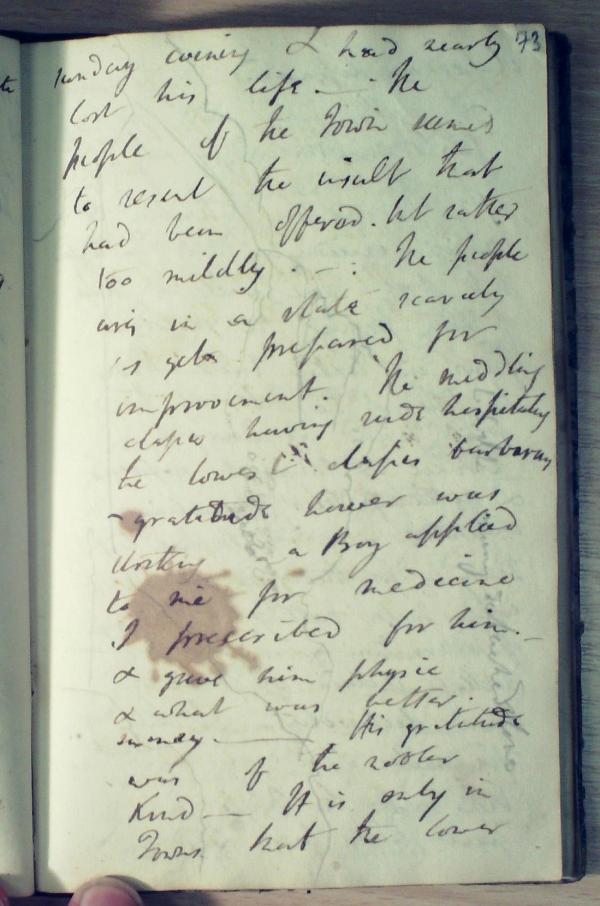 73
sunday evening & had nearly
lost his life. — The
people of the Town seemed
to resent the insult that
had been offered. but rather
too mildly. — : The people
are in a state scarcely
as yet prepared for
improvement. The middling
classes having rude hospitality
the lower classes barbarous
- gratitude however was
a Boy applied
to me for medicine
I prescribed for him. —
& gave him physic
& what was better.
money. — His gratitude
was of the nobler
Kind — It is only in
Towns that the lower